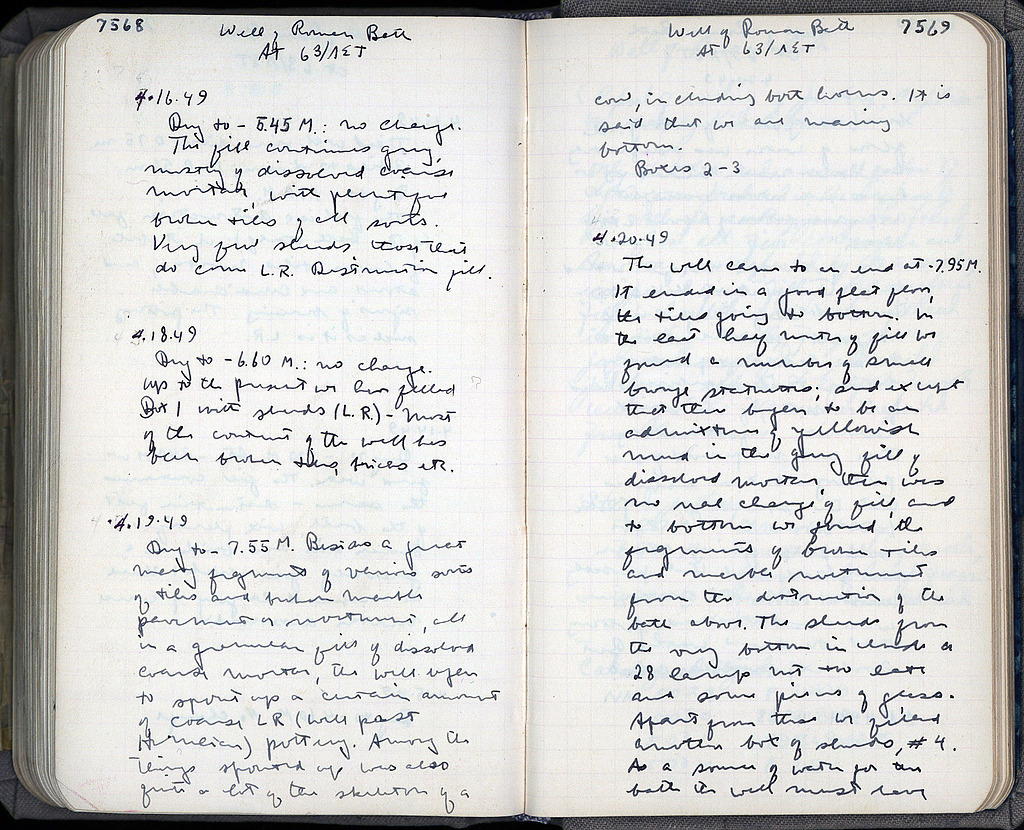 7568
Well of Roman Bath
At 63/ΛΣΤ
4.16.49
Dug to - 5.45 M.: no change.
The fill continues grey,
mostly of dissolved coarse
mortar, with plentiful
broken tiles of all sorts.
Very few sherds those that
do come L.R. Destruction fill.
4.18.49
Dug to - 6.60 M.: no change.
Up to the present we have filled
Box 1 with sherds (L.R.) - Most
of the content of the well has
been broken tiles, bricks etc.
4.19.49
Dug to - 7.55 M. Besides a great
many fragments of various sorts
of tiles and broken marble
pavement or revetment, all
in a granular fill of dissolved
coarse mortar, the well began
to spout up a certain amount
of coarse LR (well past
Herulian) pottery. Among the
things spouted up was also
quite a lot of the skeleton of a
7569
Well of Roman Bath
At 63/ΛΣΤ
cow, including both horns. It is
said that we are nearing
bottom.
Boxes 2-3
4.20.49
The well came to an end at -7.95 M.
It ended in a good flat floor,
the tiles going to bottom. In
the last half meter of fill we
found a number of small
bronze statuettes; and except
that there began to be an
admixture of yellowish
mud in the grey fill of
dissolved mortar, there was
no real change of fill, and
to bottom we found the
fragments of broken tiles
and marble revetment
from the destruction of the
bath above. The sherds from
the very bottom include a
28 lamp not too late
and some pieces of glass.
Apart from that we filled
another box of sherds, #4.
As a source of water for the
bath the well must have